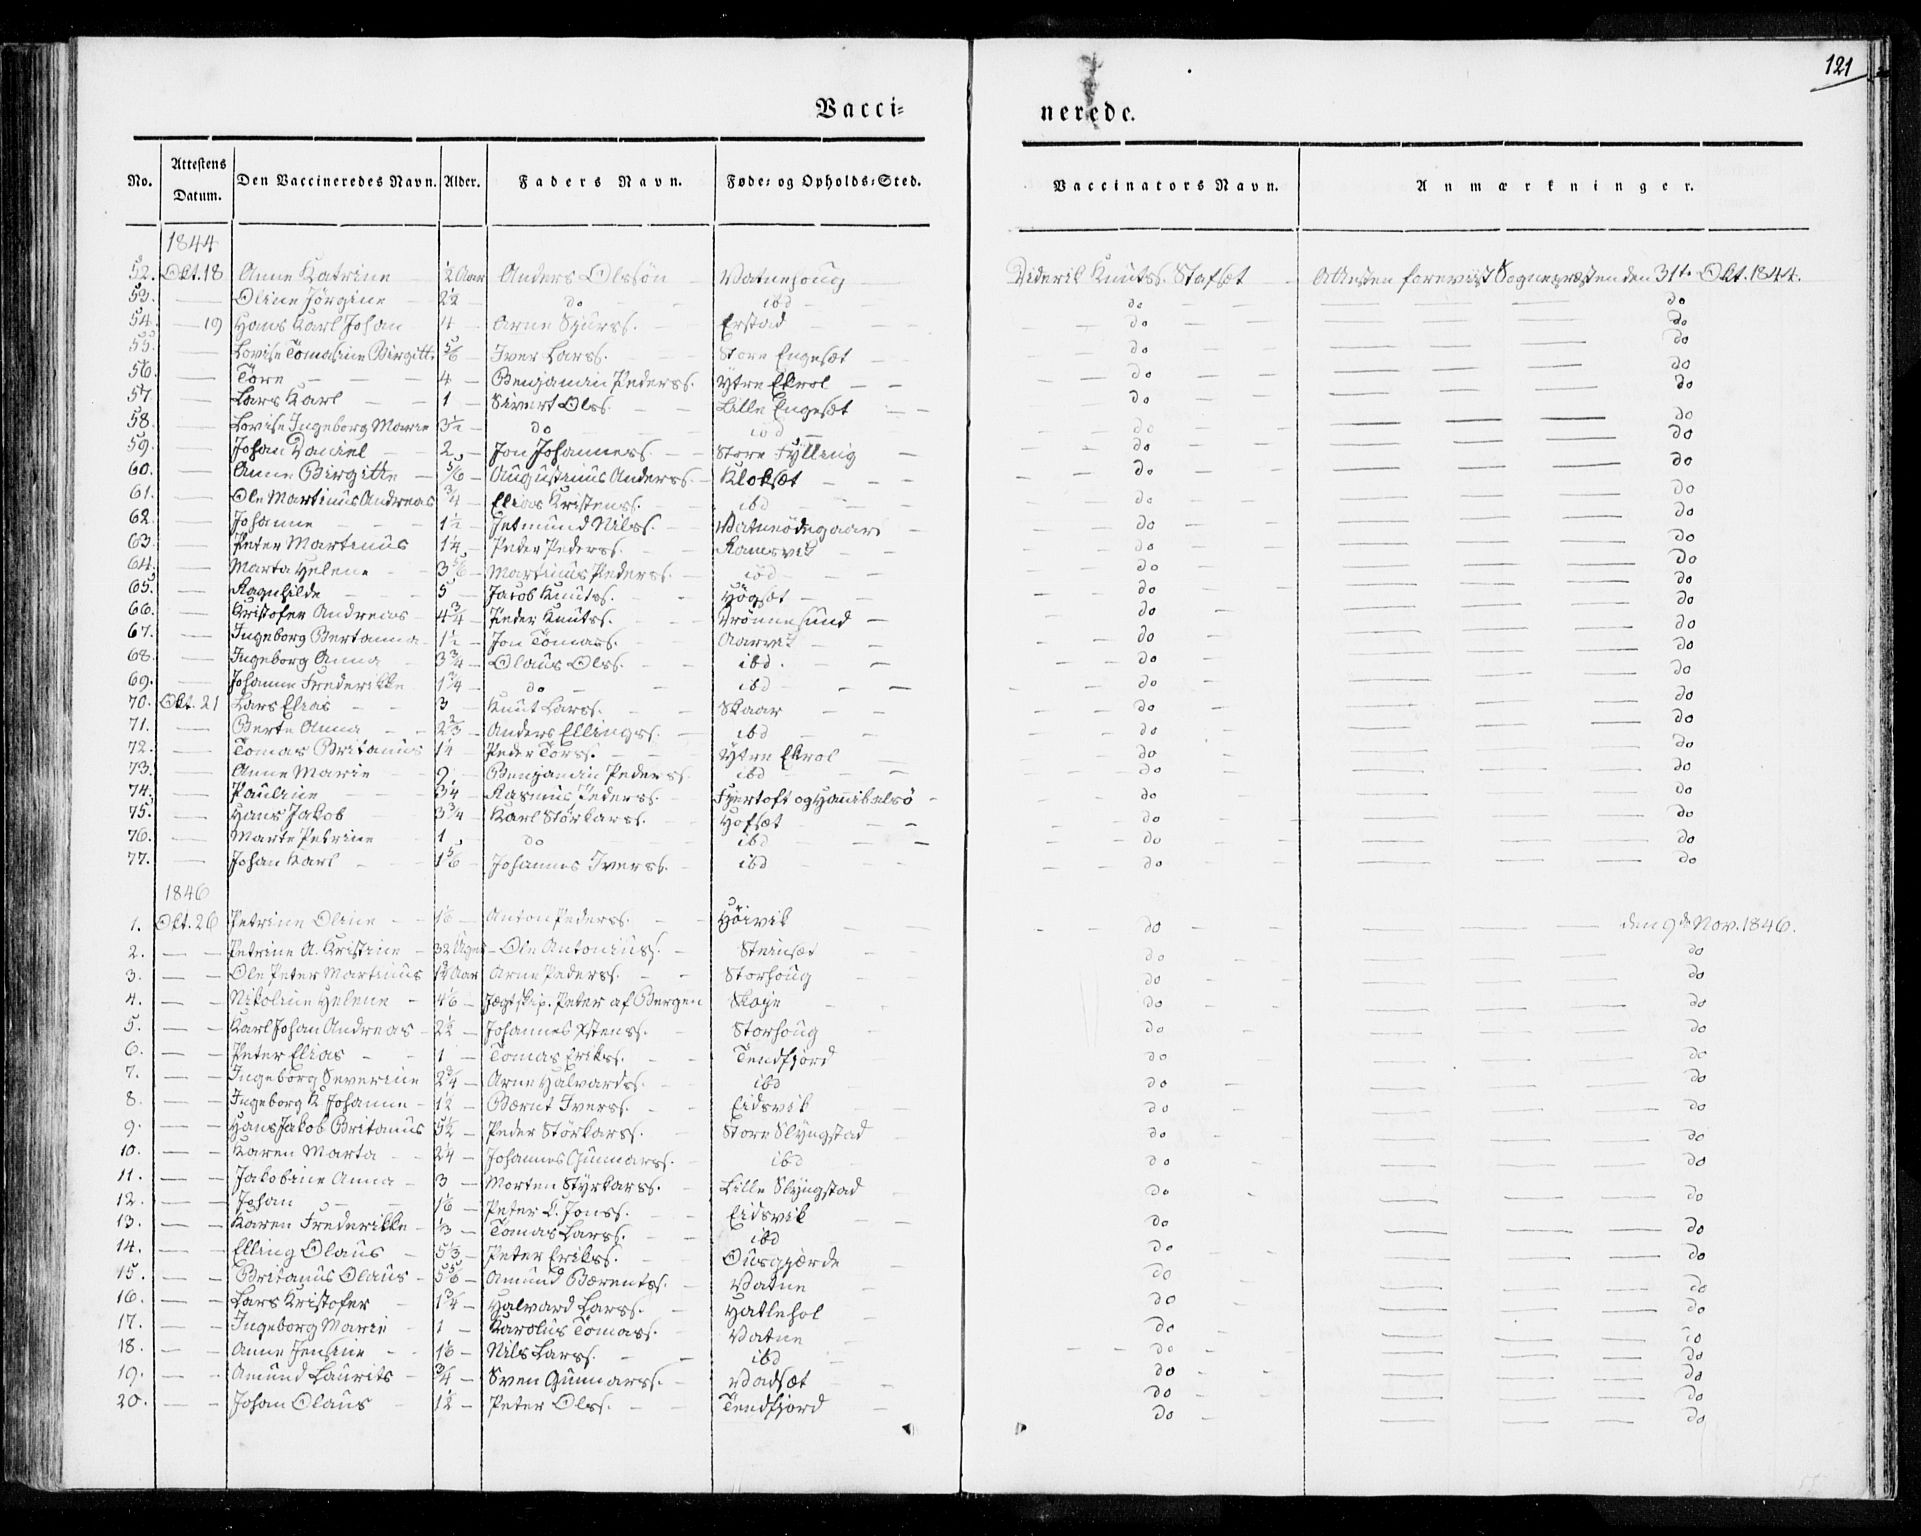 121
Vacci= nerede.
No. Attestens Datum. Den Vaccineredes Navn. Alder. Faders Navn. Føde= og Opholds=Sted. Vaccinators Navn. Anmærkninger.
1844
52. Okt. 18 Anne Katrine — ½ Aar Anders Olssøn — Vatnehoug — Diderik Knutss. Stafset — Attesten foreviist Sognepræsten den 31te Okt. 1844.
53. — Oline Jørgine — 2½ — do — ibd — do — do
54. — 19 Hans Karl Johan 4 — Arne Sjurss. — Erstad — do — do
55. — Lovise Tomasine Birgitte 5/6 — Iver Larss. — Store Engeset — do — do
56. — Tore — 4 — Benjamin Pederss. Ytre Ekrol — do — do
57. — Lars Karl — 1 — Sivert Olss. — Lille Engeset — do — do
58. — Lovise Ingeborg Marie 3½ — do — ibd — do — do
59. — Johan Daniel — 2 — Jon Johanness. — Store Fylling — do — do
60. — Anne Birgitte — 5/6 — Augustinus Anderss. — Klokset — do — do
61. — Ole Martinus Andreas ¾ — Elias Kristenss. — ibd — do — do
62. — Johanne — 1½ — Jetmund Nilss. — Vatneødegaard — do — do
63. — Peter Martinus 1¼ — Peder Pederss. — Ramsvik — do — do
64. — Marta Helene — 3 5/6 — Martinus Pederss. — ibd — do — do
65. — Ragnhilde — 5 — Jacob Knutss. — Høgset — do — do
66. — Kristofer Andreas — 4¾ — Peder Knutss. — Drønnesund — do — do
67. — Ingeborg Bertanna — 1½ — Jon Tomass. — Aarvik — do — do
68. — Ingeborg Anna — 3¾ — Olaus Olss. — ibd. — do — do
69. — Johanne Frederikke 1¾ — do — ibd — do — do
70. Okt. 21 Lars Elias — 3 — Knut Larss. — Skaar — do — do
71. — Berte Anna — 2⅔ — Anders Ellingss. — ibd — do — do
72. — Tomas Britanus 1¼ — Peder Torss. — Ytre Ekrol — do — do
73. — Anne Marie — 2 — Benjamin Pederss. — ibd — do — do
74. — Pauline — ¾ — Rasmus Pederss. — Fjertoft og Hanibalsø — do — do
75. — Hans Jakob — 3¾ — Karl Størkarss. — Hofset — do — do
76. — Marte Petrine — 1 — do — ibd — do — do
77. — Johan Karl — 1 5/6 — Johannes Iverss. — ibd — do — do
1846
1. Okt. 26 Petrine Oline — 1/6 — Anton Pederss. — Høivik — do — den 9de Nov. 1846.
2. — Petrine A. Kristine — 32 Uger — Ole Antoniuss. — Steinset — do — do
3. — Ole Peter Martinus Aar Arne Pederss. — Storhoug — do — do
4. — Nikoline Helene — 4 1/6 — Jægtskip. Peter af Bergen — do — do
5. — Karl Johan Andreas — 2½ — Johannes — Storhoug — do — do
6. — Peter Elias — 1 — Tomas Erikss. — Tendfjord — do — do
7. — Ingeborg Severine 2¾ — Arne Halvardss. — ibd — do — do
8. — Ingeborg K. Johanne — 1½ — Bærnt Iverss. — Eidsvik — do — do
9. — Hans Jakob Britanus 5½ — Peder Størkarss. — Store Slyngstad — do — do
10. — Karen Marta — 2¼ — Johannes Gunnarss. — ibd — do — do
11. — Jakobine Anna — 3 — Morten Styrkarss. — Lille Slyngstad — do — do
12. — Johan — 1/6 — Peter C. Jonss. — Eidsvik — do — do
13. — Karen Frederikke — ⅓ — Tomas Larss. — ibd — do — do
14. — Elling Olaus — 5⅓ — Peter Erikss. — Ousgjærde — do — do
15. — Britanus Olaus — 5 5/6 — Amund Bærentss. — Vatne — do — do
16. — Lars Kristofer — 1¾ — Halvard Larss. — Hatlehol — do — do
17. — Ingeborg Marie — 1 — Karolus Tomass. — Vatne — do — do
18. — Anne Jensine — 1/6 — Nils Larss. — ibd — do — do
19. — Amund Laurits — ¾ — Sven Gunnarss. — Vadset — do — do
20. — Johan Olaus — 1½ — Peter Olss. — Tendfjord — do — do